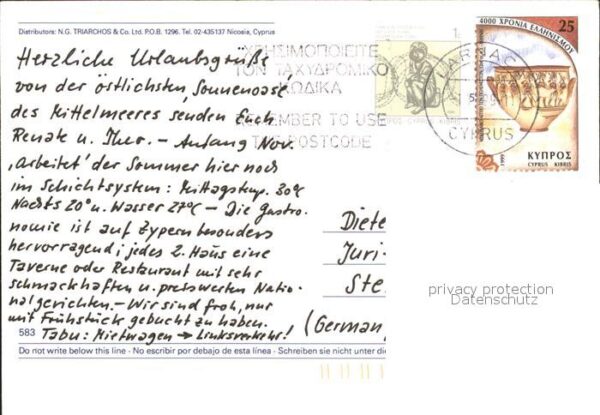 Distributors: N.G. TRIARCHOS & Co. Ltd. P.O.B. 1296. Tel. 02-435137 Nicosia, Cyprus
Herzliche Urlaubsgrüße
von der östlichsten "Sonnenoase"
des Mittelmeeres senden Euch
Renate u. Theo. – Anfang Nov.
"arbeitet" der Sommer hier noch
im Schichtsystem: Mittagstemp. 30°
Nachts 20° u. Wasser 27° – Die Gastro-
nomie ist auf Zypern besonders
hervorragend; jedes 2. Haus eine
Taverne oder Restaurant mit sehr
schmackhaften u. preiswerten Natio-
nalgerichten. – Wir sind froh, nur
mit Frühstück gebucht zu haben.
Tabu: Mietwagen → Linksverkehr!
583
Do not write below this line - No escribir por debajo de esta línea - Schreiben sie nicht unter di
ΧΡΗΣΙΜΟΠΟΙΕΙΤΕ
ΤΟΝ ΤΑΧΥΔΡΟΜΙΚΟ
ΚΩΔΙΚΑ
REMEMBER TO USE
THE POSTCODE
1c
LARNACA
CYPRUS
4000 ΧΡΟΝΙΑ ΕΛΛΗΝΙΣΜΟΥ
25
ΚΥΠΡΟΣ
CYPRUS KIBRIS
Diete
Juri-
Ste
(German
privacy protection
Datenschutz